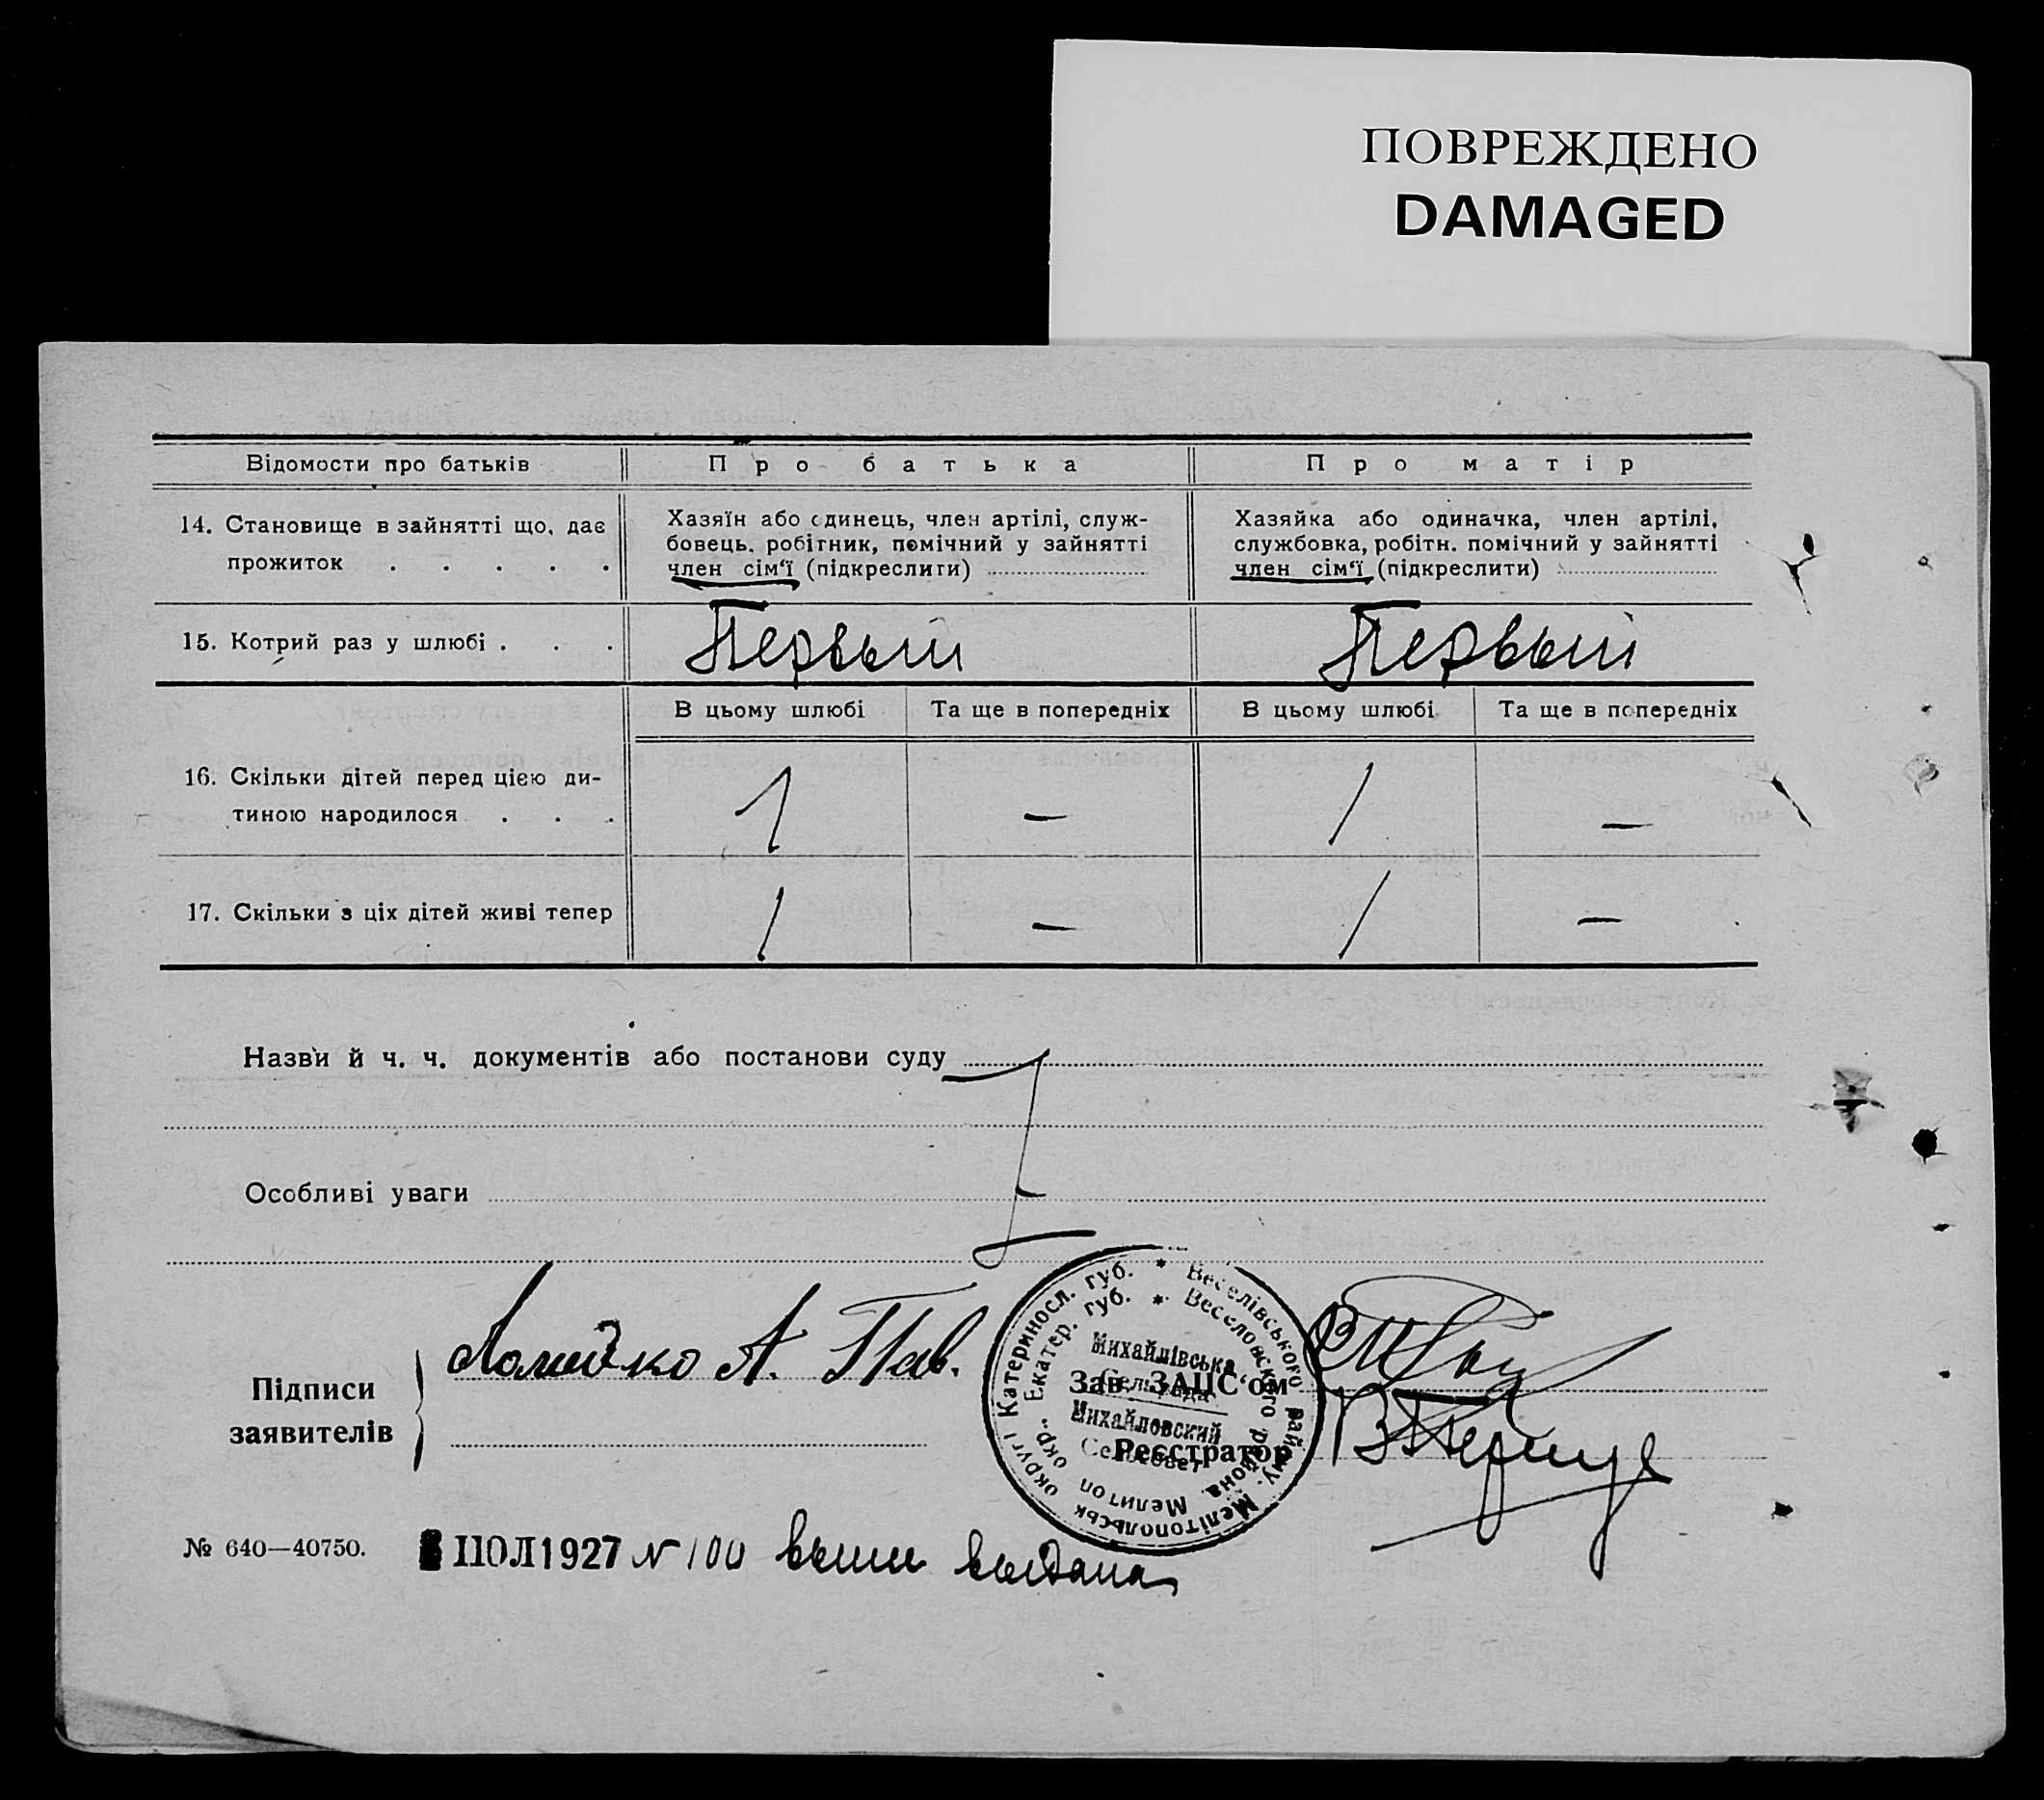 ПОВРЕЖДЕНО
DAMAGED
Відомости про батьків
Про батька
Про матір
14. Становище в зайнятті що, дає
прожиток . . . . .
Хазяїн або одинець, член артілі, служ-
бовець. робітник, помічний у зайнятті
член сім‘ї (підкреслити)
Хазяйка або одиначка, член артілі,
службовка, робітн. помічний у зайнятті
член сім‘ї (підкреслити)
15. Котрий раз у шлюбі . . .
Первый
Первый
В цьому шлюбі
Та ще в попередніх
В цьому шлюбі
Та ще в попередніх
16. Скільки дітей перед цією ди-
тиною народилося . . .
1
—
1
—
17. Скільки з ціх дітей живі тепер
1
—
1
—
Назви й ч. ч. документів або постанови суду
Особливі уваги
Підписи
заявителів
А. Пав.
Катериносл. губ. * Веселівського району. Мелітопольськ округі
Екатер. губ. * Веселовского района. Мелитоп окр.
Михайлівська
Сельрада
Михайловский
Сельсовет
Зав. ЗАЦС‘ом
Реєстратор
№ 640—40750.
ИЮЛ 1927 N 100 выпи выдана